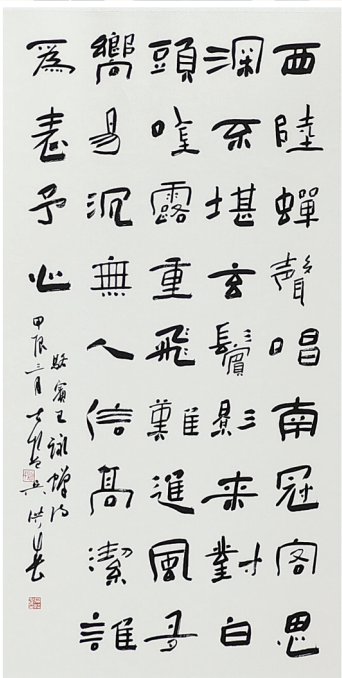 西陸蟬聲唱南冠客思
深不堪玄鬢影來對白
頭吟露重飛難進風多
嚮易沉無人信高潔誰
爲表予心
駱賓王詠蟬詩
甲辰三月